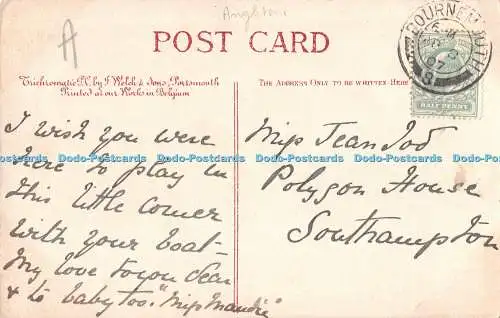 Anglton
A
POST CARD
Trichromatic P.C. by F. Welch & Sons, Portsmouth
Printed at our Works in Belgium
THE ADDRESS ONLY TO BE WRITTEN HERE
BOURNEMOUTH
07
HALF PENNY
I wish you were
here to play in
this little corner
with your boat-
My love to you dear
& to baby too. "Miss Maudie"
Miss Jean
Polygon House
Southampton
Dodo-Postcards Dodo-Postcards Dodo-Postcards Dodo-Postcards Dodo-Postcards